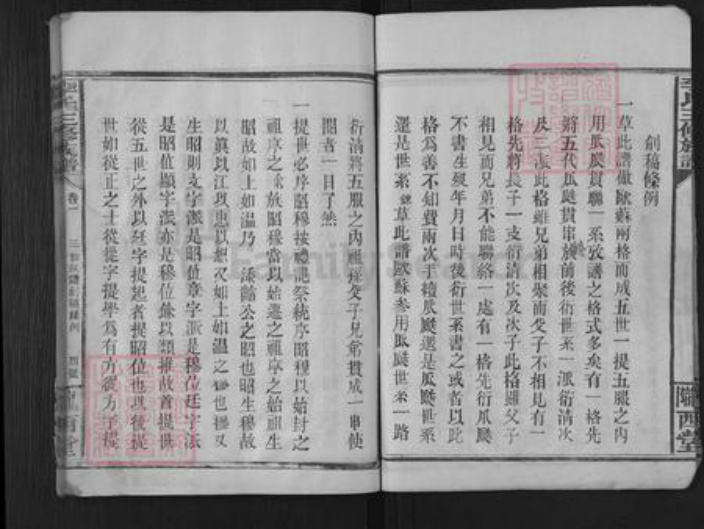 創稿條例
一草此譜倣歐蘇兩格而成五世一提五服之內
用瓜瓞貫聯一系攷譜之格式多矣有一格先
將五代瓜瓞貫串於前後衍世系一派衍清次
及二派此格雖兄弟相聚而父子不相見有一
格先將長子一支衍清次及次子此格雖父子
相見而兄弟不能聯絡一處有一格先衍瓜瓞
不書生歿年月日時後衍世系書之或者以此
格爲善不知費兩次手續瓜瓞還是瓜瓞世系
還是世系 草此譜歐蘇參用瓜瓞世系一路
衍清將五服之內祖孫父子兄弟貫成一串使
閱者一目了然
一提世必序昭穆按禮記祭統序昭穆以始封之
祖序之 放昭穆當以始遷之祖序之始祖生
昭故如上如溫乃 公之昭也昭生穆故
以 以江以惠以 又如上如溫之穆也穆又
生昭則文字派是昭位章字派是穆位廷字派
是昭位顯字派亦是穆位餘以類推故首提世
從五世之外以廷字提起者提昭位也以後提
世如從正之士從提字提學爲有方從方字提
李氏三修族譜
隴西堂
卷一